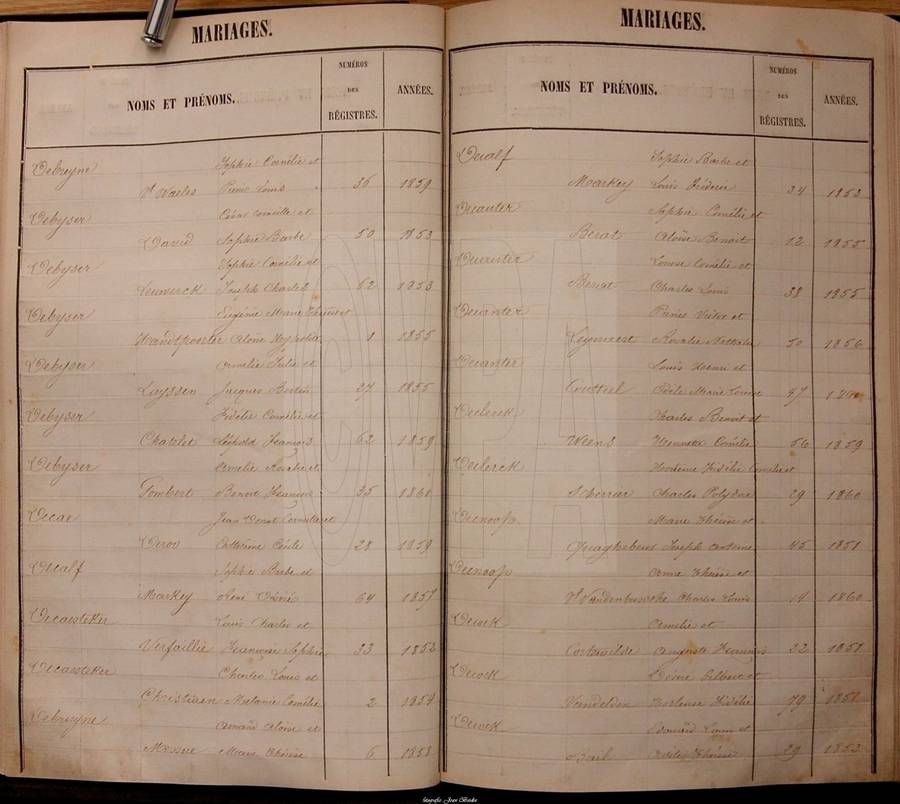 MARIAGES.
NOMS ET PRÉNOMS.
NUMÉROS
DES
RÉGISTRES.
ANNÉES.
Debruyne Sophie Cornélie et
Vt Waeles Pierre Louis 36 1859
Debyser César Corneille et
David Sophie Barbe 50 1853
Debyser Sophie Cornélie et
Leuwerck Joseph Charles 62 1853
Debyser Eugénie Marie Thérèse et
Handtpoorter Aloïse Hypolite 1 1855
Debyser Amelie Julie et
Luyssen Jacques Bertin 27 1855
Debyser Fidélie Cornélie et
Chatelet Léopold François 62 1859
Debyser Amelie Rosalie et
Tombert Benoit François 35 1860
Decae Jean Donat Corneille et
Catherine Cécile 28 1859
Decalf Sophie Barbe et
Markey René Désiré 64 1857
Decaesteker Louis Charles et
Verfaillie Jeannine Sophie 33 1852
Decaesteker Charles Louis et
Christiaen Melanie Cornélie 2 1854
Debruyne Armand Aloïse et
Messue Marie Thérèse 6 1853
MARIAGES.
NOMS ET PRÉNOMS.
NUMÉROS
DES
RÉGISTRES.
ANNÉES.
Decalf Sophie Barbe et
Markey Louis Fréderic 34 1853
Decanter Sophie Cornélie et
Berat Aloïse Benoit 12 1855
Decanter Louise Cornélie et
Berat Charles Louis 38 1855
Decanter Pierre Victor et
Rosalie Nathalie 50 1856
Decanter Louis Henri et
Odèle Marie Louise 47
Declerck Charles Benoit et
Weens Henriette Cornélie 56 1859
Declerck Hortense Fidélie Cornélie et
Scherrier Charles Polydore 29 1860
Decnoop Marie Thérèse et
Quaghebeur Joseph Antoine 45 1851
Decnoop Anne Thérèse et
Vt Vandenbussche Charles Louis 1 1860
Decock Amelie et
Cortewilde Auguste François 22 1851
Decock Désiré Albert et
Vandelden Hortense Fidélie 79 1851
Decock Edouard Louis et
Bril Odile Thérèse 29 1853
CVPA
fotografie Jean Beucke